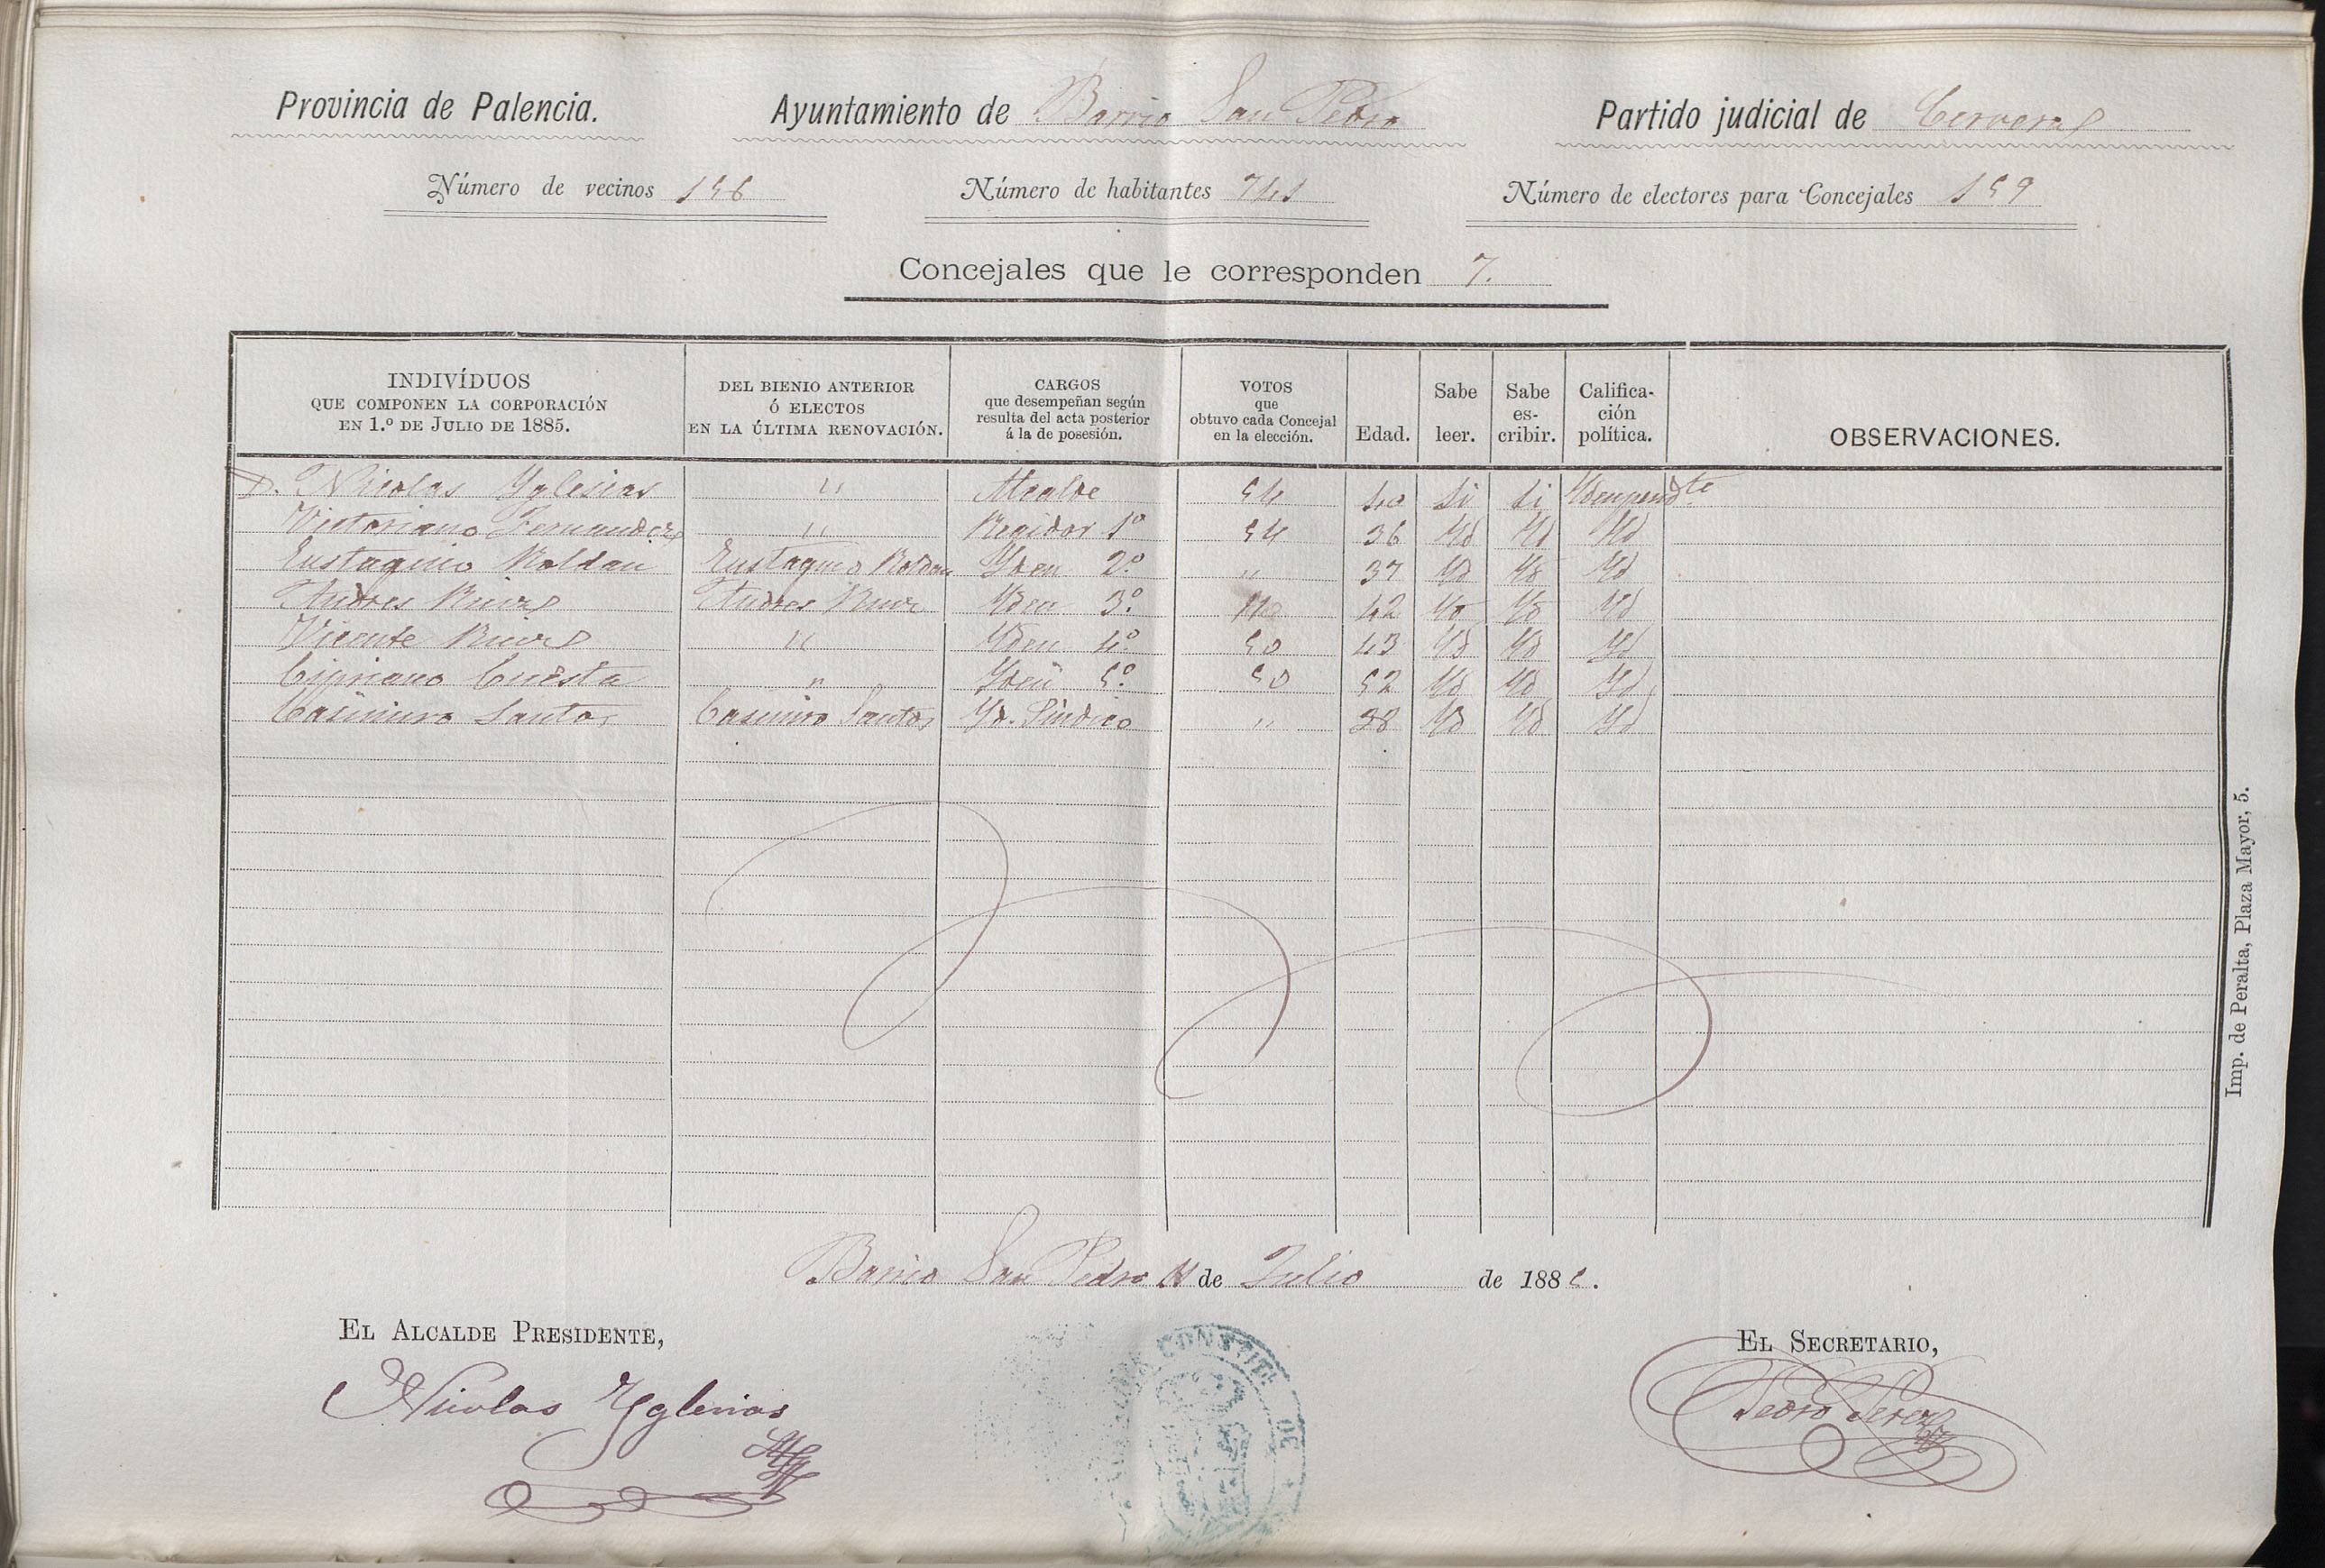 Provincia de Palencia. Ayuntamiento de Barrio San Pedro Partido judicial de Cervera
Número de vecinos 156 Número de habitantes 741 Número de electores para Concejales 159
Concejales que le corresponden 7.
INDIVÍDUOS QUE COMPONEN LA CORPORACIÓN EN 1.º DE JULIO DE 1885. DEL BIENIO ANTERIOR Ó ELECTOS EN LA ÚLTIMA RENOVACIÓN. CARGOS que desempeñan según resulta del acta posterior á la de posesión. VOTOS que obtuvo cada Concejal en la elección. Edad. Sabe leer. Sabe es-cribir. Califica-ción política. OBSERVACIONES.
D. Nicolas Yglesias " Alcalde 54 40 Si Si Ydenpendte
Victoriano Fernandez " Regidor 1º 54 36 Yd Yd Yd
Eustaquio Roldan Eustaquio Roldan Yden 2º " 37 Yd Yd Yd
Andres Ruiz Andres Ruiz Yden 3º. 42 Yd Yd Yd
Vicente Ruiz " Yden 4º. 50 43 Yd Yd Yd
Cipriano Cuesta " Yden 5º. 50 52 Yd Yd Yd
Casimiro Santos Casimiro Santos Yd. Sindico " 38 Yd Yd Yd
Imp. de Peralta, Plaza Mayor, 5.
Barrio San Pedro de Julio de 1885.
EL ALCALDE PRESIDENTE, EL SECRETARIO,
Nicolas Yglesias Pedro Perez
CONSTIT
DE